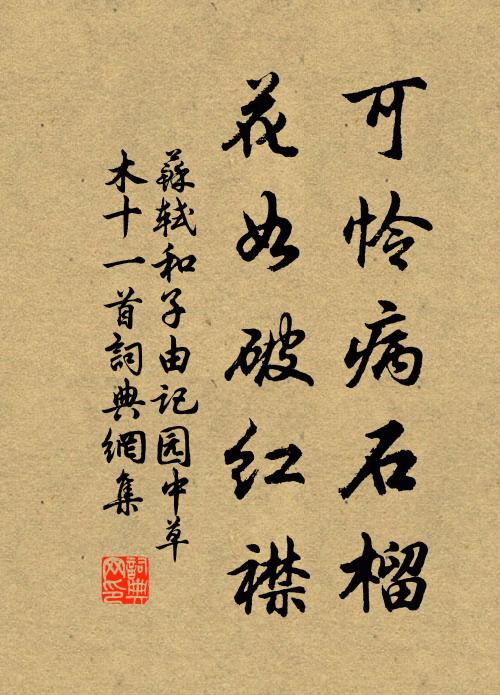 可怜病石榴
花如破红襟
蘇軾和子由记园中草
木十一首詞典網集
詞典
网印